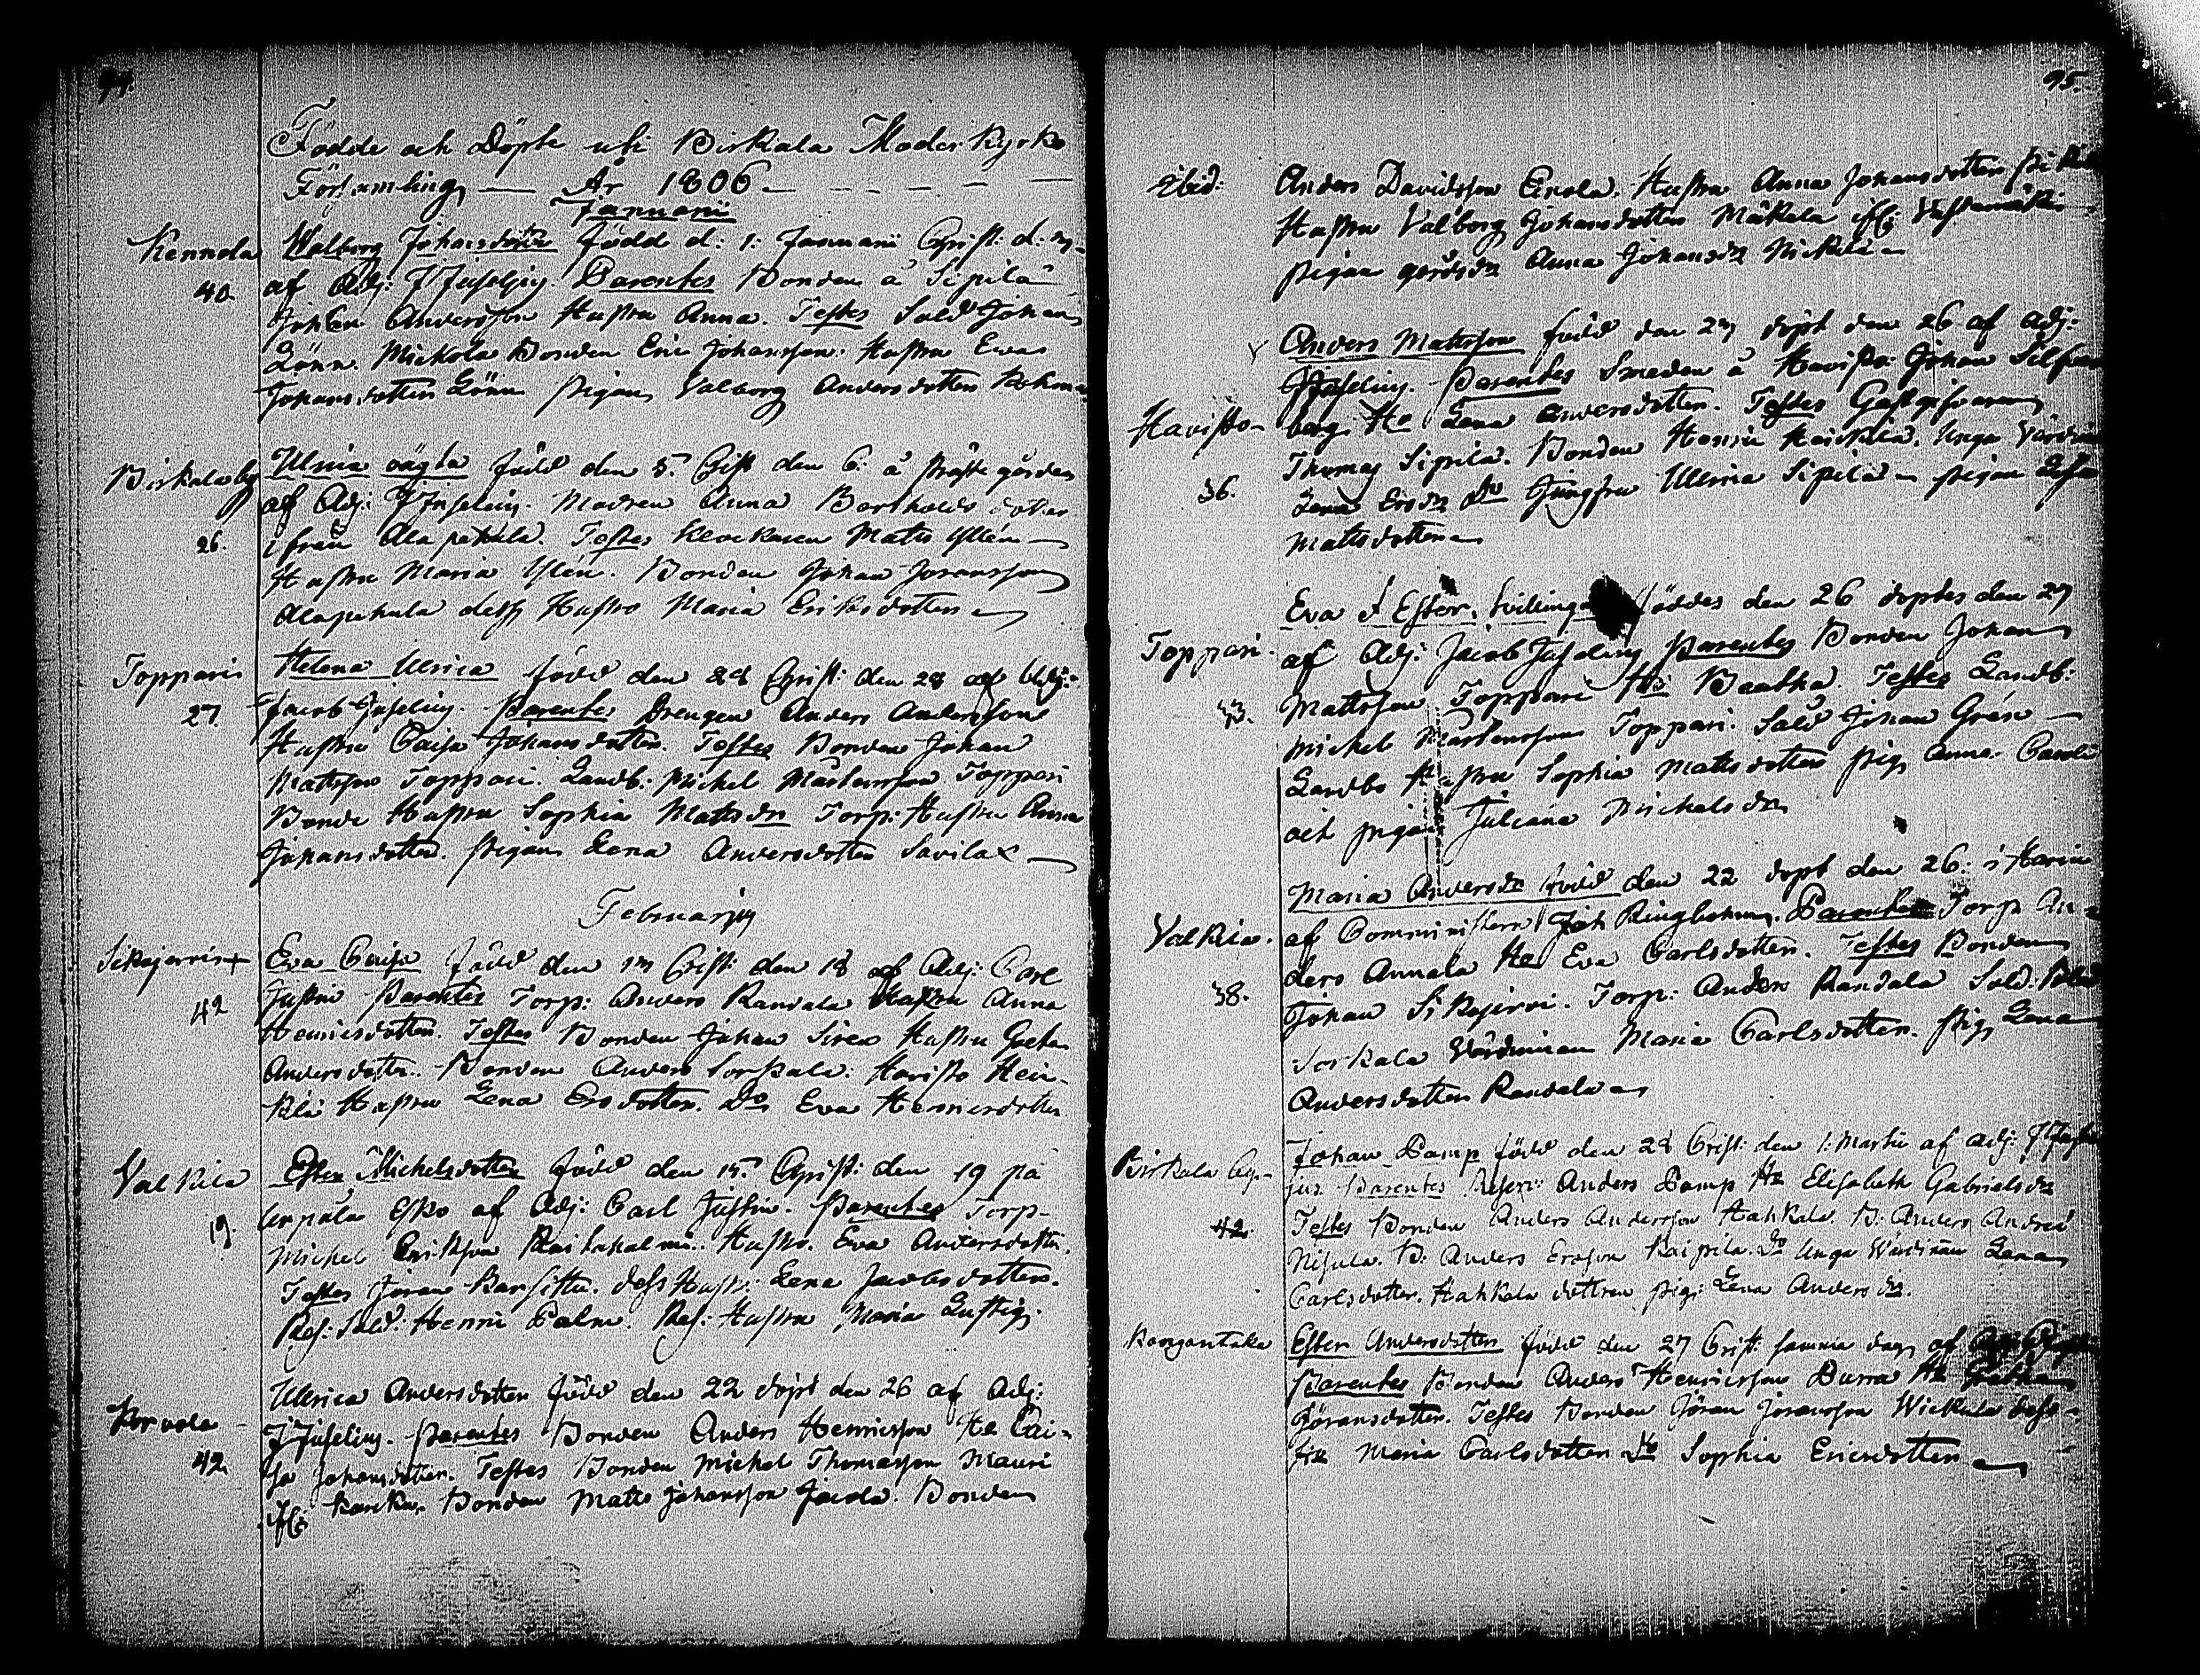 94.
Födde och Döpte uti Birkala Moder Kyrko
Församling — År 1806 —
Januarii
Kennola
40.
Walborg Johansdotter född d: 1: Januarii Christ: d:
af Adj: J Juselius. Parentes Bonden å Sipilä
Johan Andersson Hustru Anna. Testes Sold Johan
Lönn. Mickola Bonden Eric Johansson. Hustru Eva
Johansdotter Lönn pigan Valborg Andersdotter
Birkala by
26.
Ulrica oägta född den 5 Crist den 6: å Prästegården
af Adj: J Juselius. Modren Anna Bertholds dotter
ifrån Alapehula. Testes Klockaren Matts Ylén
Hustru Maria Ylén. Bonden Johan Joransson
Alapehula dess Hustro Maria Eriksdotter
Toppari
27
Helena Ulrica född den 28 Christ: den 28 af Adj:
Jacob Juselius. Parentes Drengen Anders Andersson
Hustru Caisa Johansdotter. Testes Bonden Johan
Mattsson Toppari. Landb: Michel Mårtensson Toppari
Bonde Hustru Sophia Mattsdr Torp: Hustru Anna
Johansdotter. pigan Lena Andersdotter Savila
Februarius
Sikojervi
42
Eva Caisa född den 17 Crist: den 18 af Adj: Carl
Justin Parentes Torp: Anders Randala Hustru Anna
Henricsdotter. Testes Bonden Johan Sirex Hustru Greta
Andersdotter. Bonden Anders Sorkala: Havisto Hei-
kilä Hustru Lena Ersdotter. Do Eva Henricsdotter
Valkila
19.
Ester Michelsdotter född den 15 Christ: den 19 på
Esko af Adj: Carl Justin. Parentes Torp
Michel Eriksson Hustro. Eva Andersdotter.
Testes Jöran dess Hustr: Lena Jacobsdotter.
Res: Sold: Henric Palm. Res: Hustru Maria Lustig.
Korvola
42
Ulrica Andersdotter född den 22 döpt den 26 af Adj:
J Juselius. Parentes Bonden Anders Henricsson H:a Cai-
sa Johansdotter. Testes Bonden Michel Thomasson Mauri
Bonden Matts Johansson Jacola. Bonden
95.
Ibid:
Anders Davidsson Erola. Hustru Anna Johansdotter
Hustru Valborg Johansdotter Mäkelä
pigan Anna Johansdr Nickilä
Havisto
36.
Anders Mattsson född den 27 döpt den 26 af Adj:
Juselius. Parentes Smeden å Havisto Johan Silfver
berg H:a Lena Andersdotter. Testes Gästgifvaren
Thomas Sipilä. Bonden Henric Heickilä. Unga Värdin
Lena Ersdr Do Jungfru Ulrica Sipilä pigan
Mattsdotter
Toppari
33.
Eva & Ester, tvillingar föddes den 26 döptes den 27
af Adj: Jacob Juselius Parentes Bonden Johan
Mattsson Toppari H:u Beatha. Testes Landb:
Michel Mårtensson Toppari. Sold Johan Grén
Landbo Hustru Sophia Mattsdotter pig Anna
och pigan Juliana Michelsdr
Valkila.
38.
Maria Andersdr född den 22 döpt den 26: i
af Comministern Joh Ringbohm. Parentes Torp An-
ders Annala H:a Eva Carlsdotter. Testes Bonden
Johan Sikojervi. Torp: Anders Randala Sold.
Sorkala Värdinnan Maria Carlsdotter. pig Lena
Andersdotter Randala
Birkala by
42.
Johan Damp född den 28 Crist: den 1: Martii af Adj: J Juse
lius. Parentes Anders Damp H:a Elisabeth Gabrielsdr
Testes Bonden Anders Andersson Hahkala B: Anders Anders
Nisula. B: Anders Ersson Kaipila Do Unga Wärdinnan Lena
Carlsdotter. Hahkala dottren pig: Lena Andersdr.
Kangantaka
Ester Andersdotter född den 27 Crist: samma dag af
Parentes Bonden Anders Henricsson Burra H:a
Göransdotter. Testes Bonden Göran Joransson Wickula dess
H:u Maria Carlsdotter Do Sophia Ericsdotter